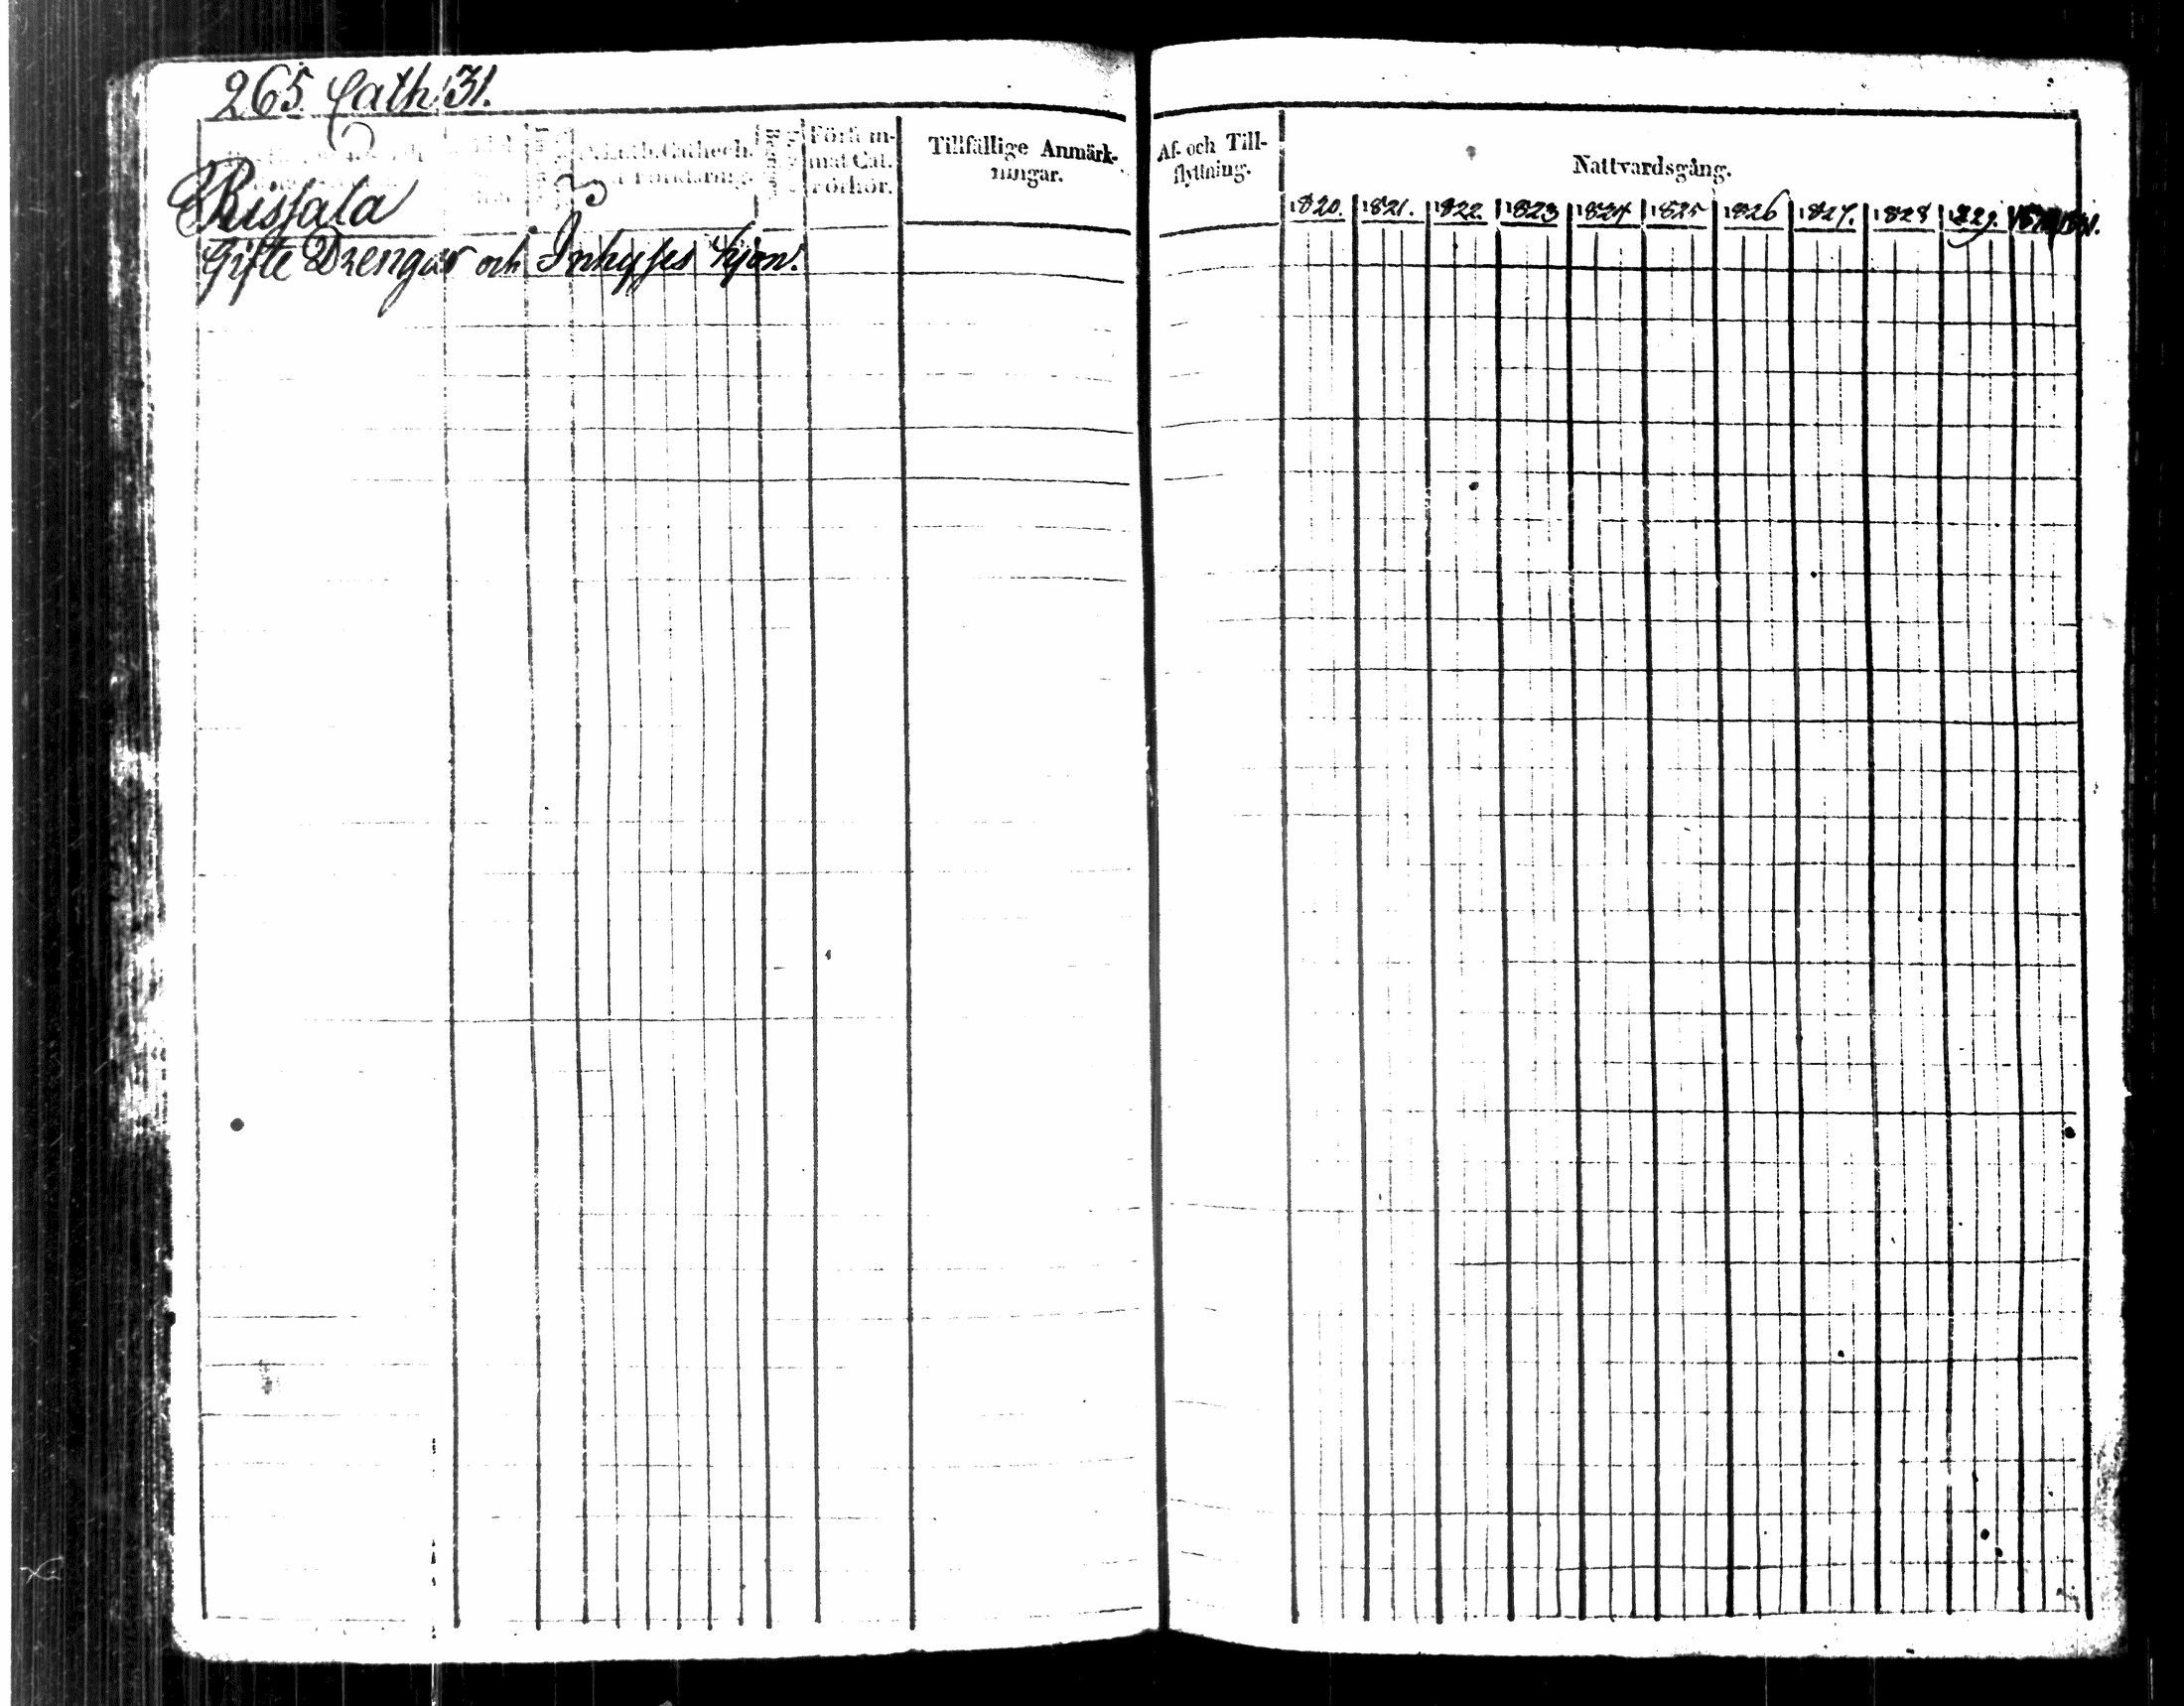 265. Cath 31.
Luth. Cathech.
Förklaring.
Försum-
mat Cat.
förhör.
Tillfällige Anmärk-
ningar.
Rissala
Gifte Drengar och Inhyses Hjon.
Af- och Till-
flyttning.
Nattvardsgång.
1820. 1821. 1822. 1823 1824 1825 1826 1827. 1828 1829.